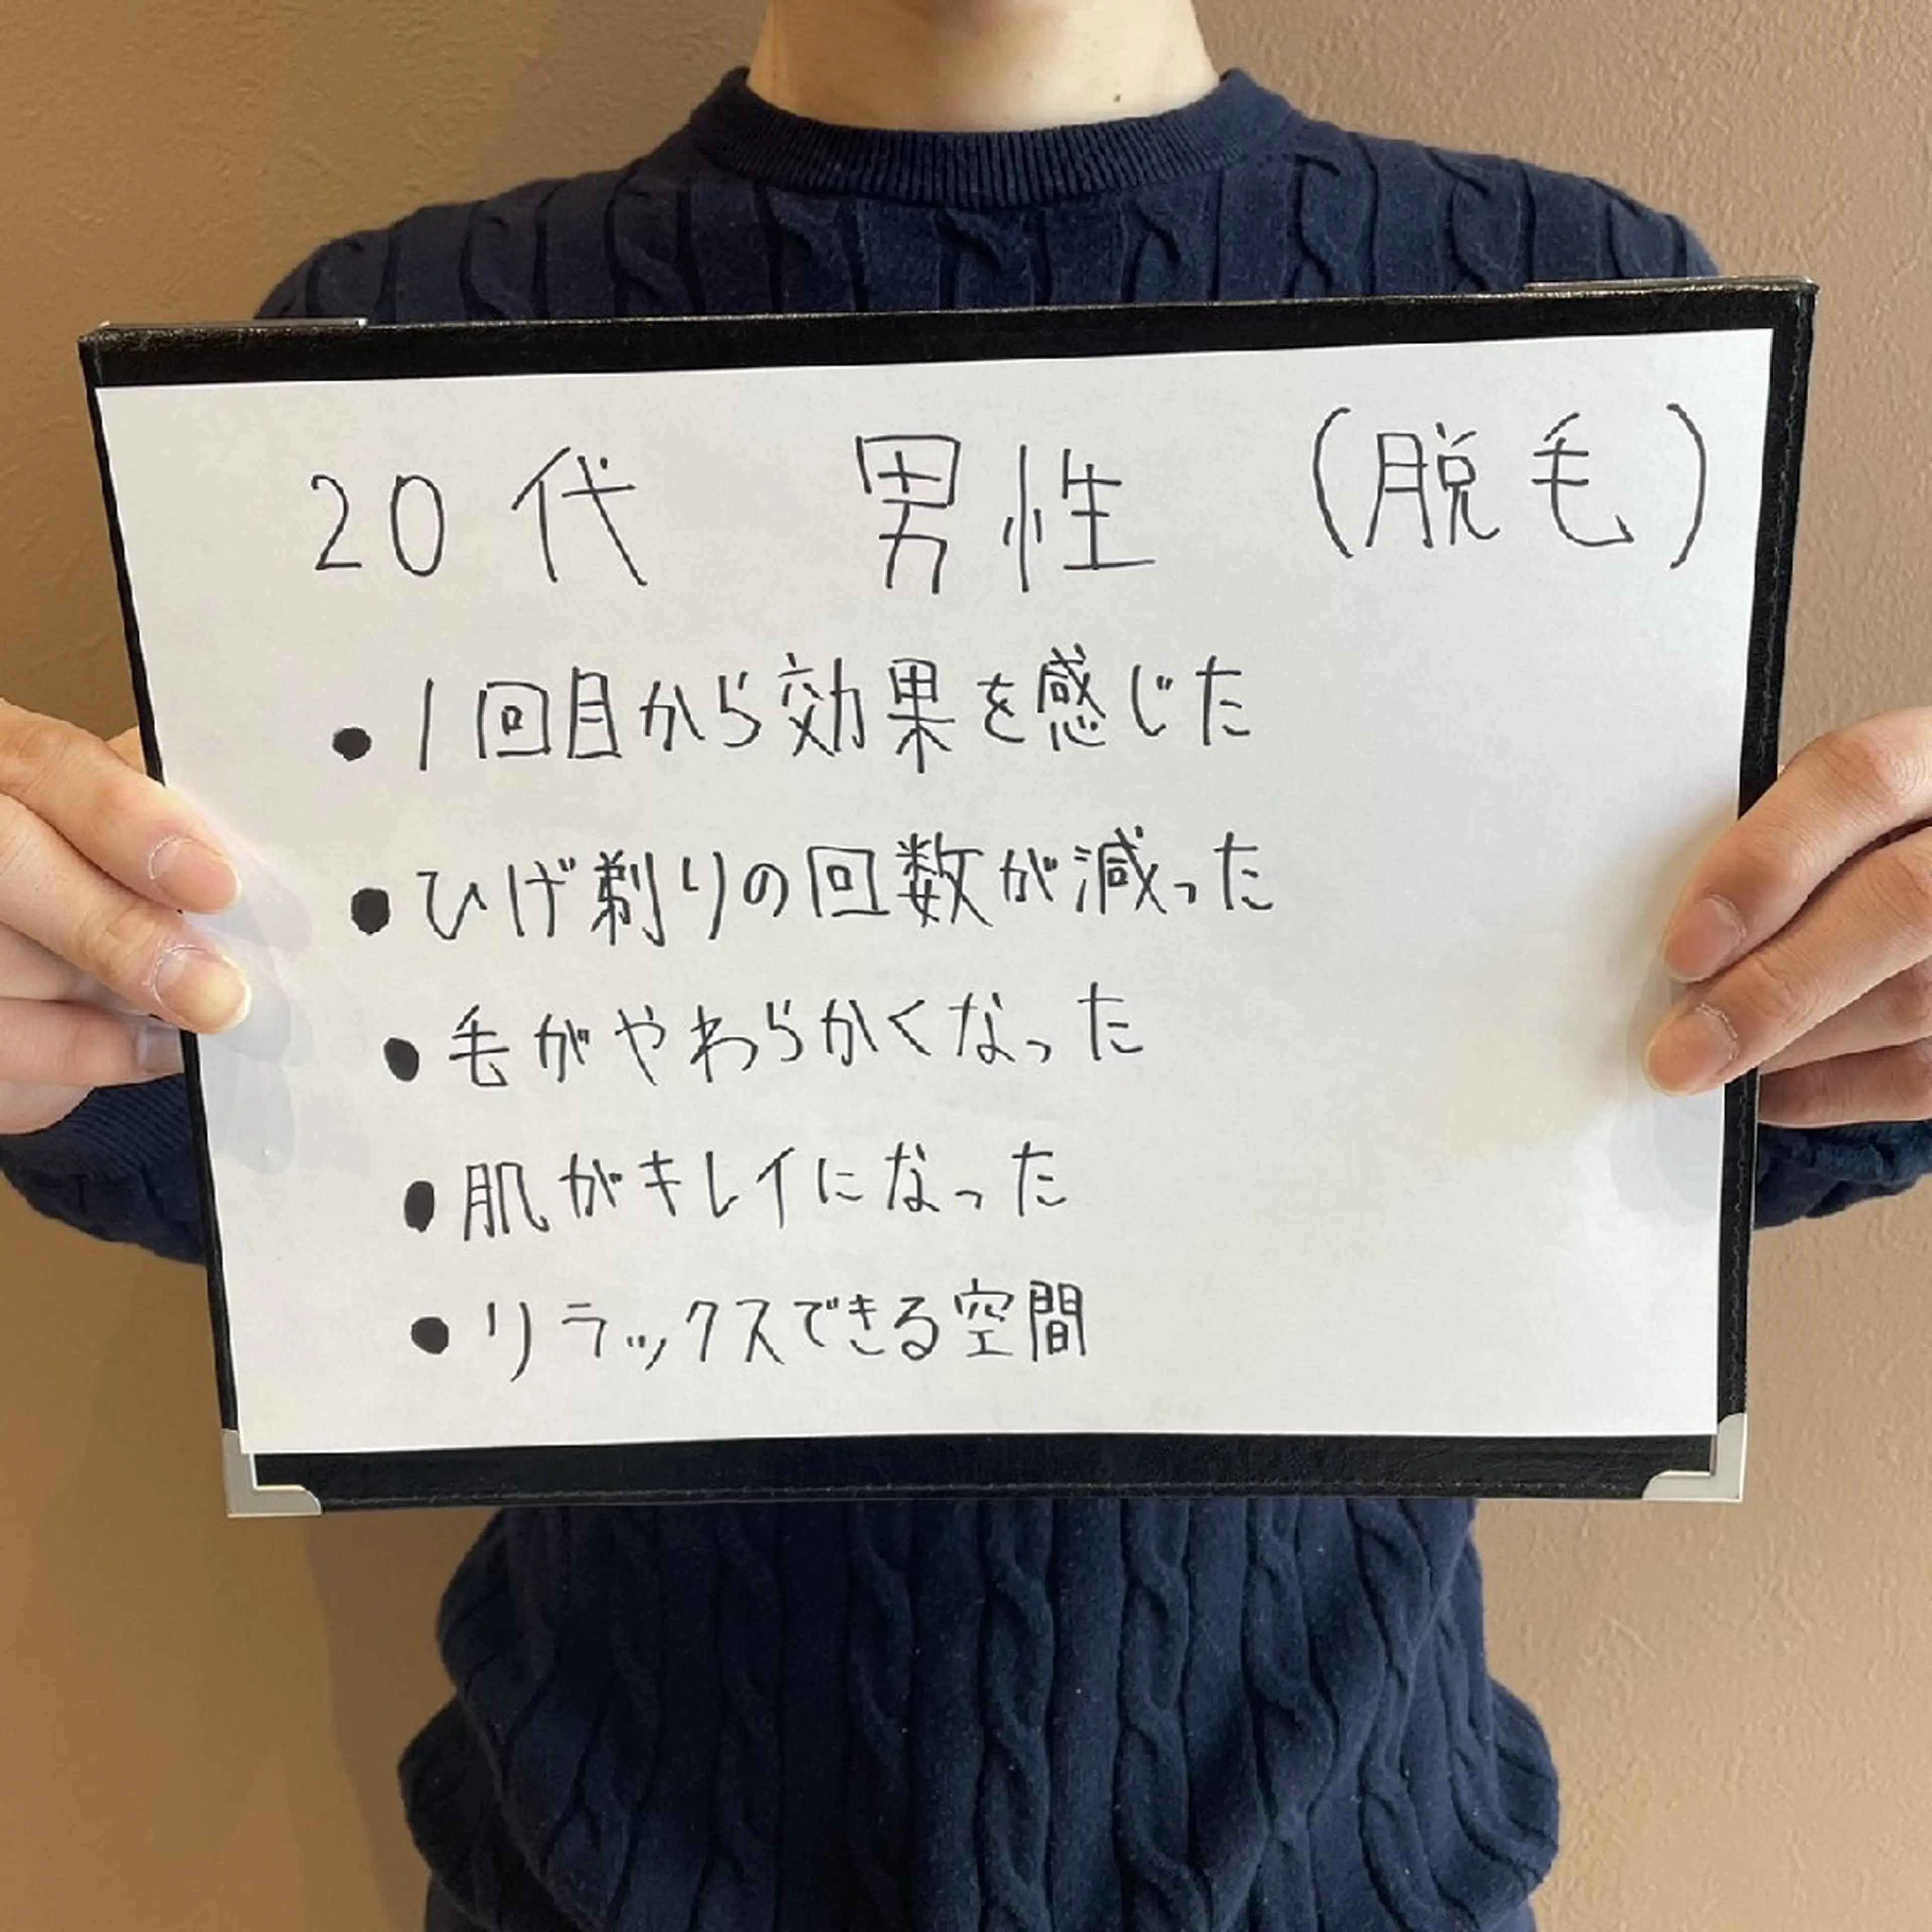 20代 男性 (脱毛)
● 1回目から効果を感じた
● ひげ剃りの回数が減った
● 毛がやわらかくなった
● 肌がキレイになった
● リラックスできる空間